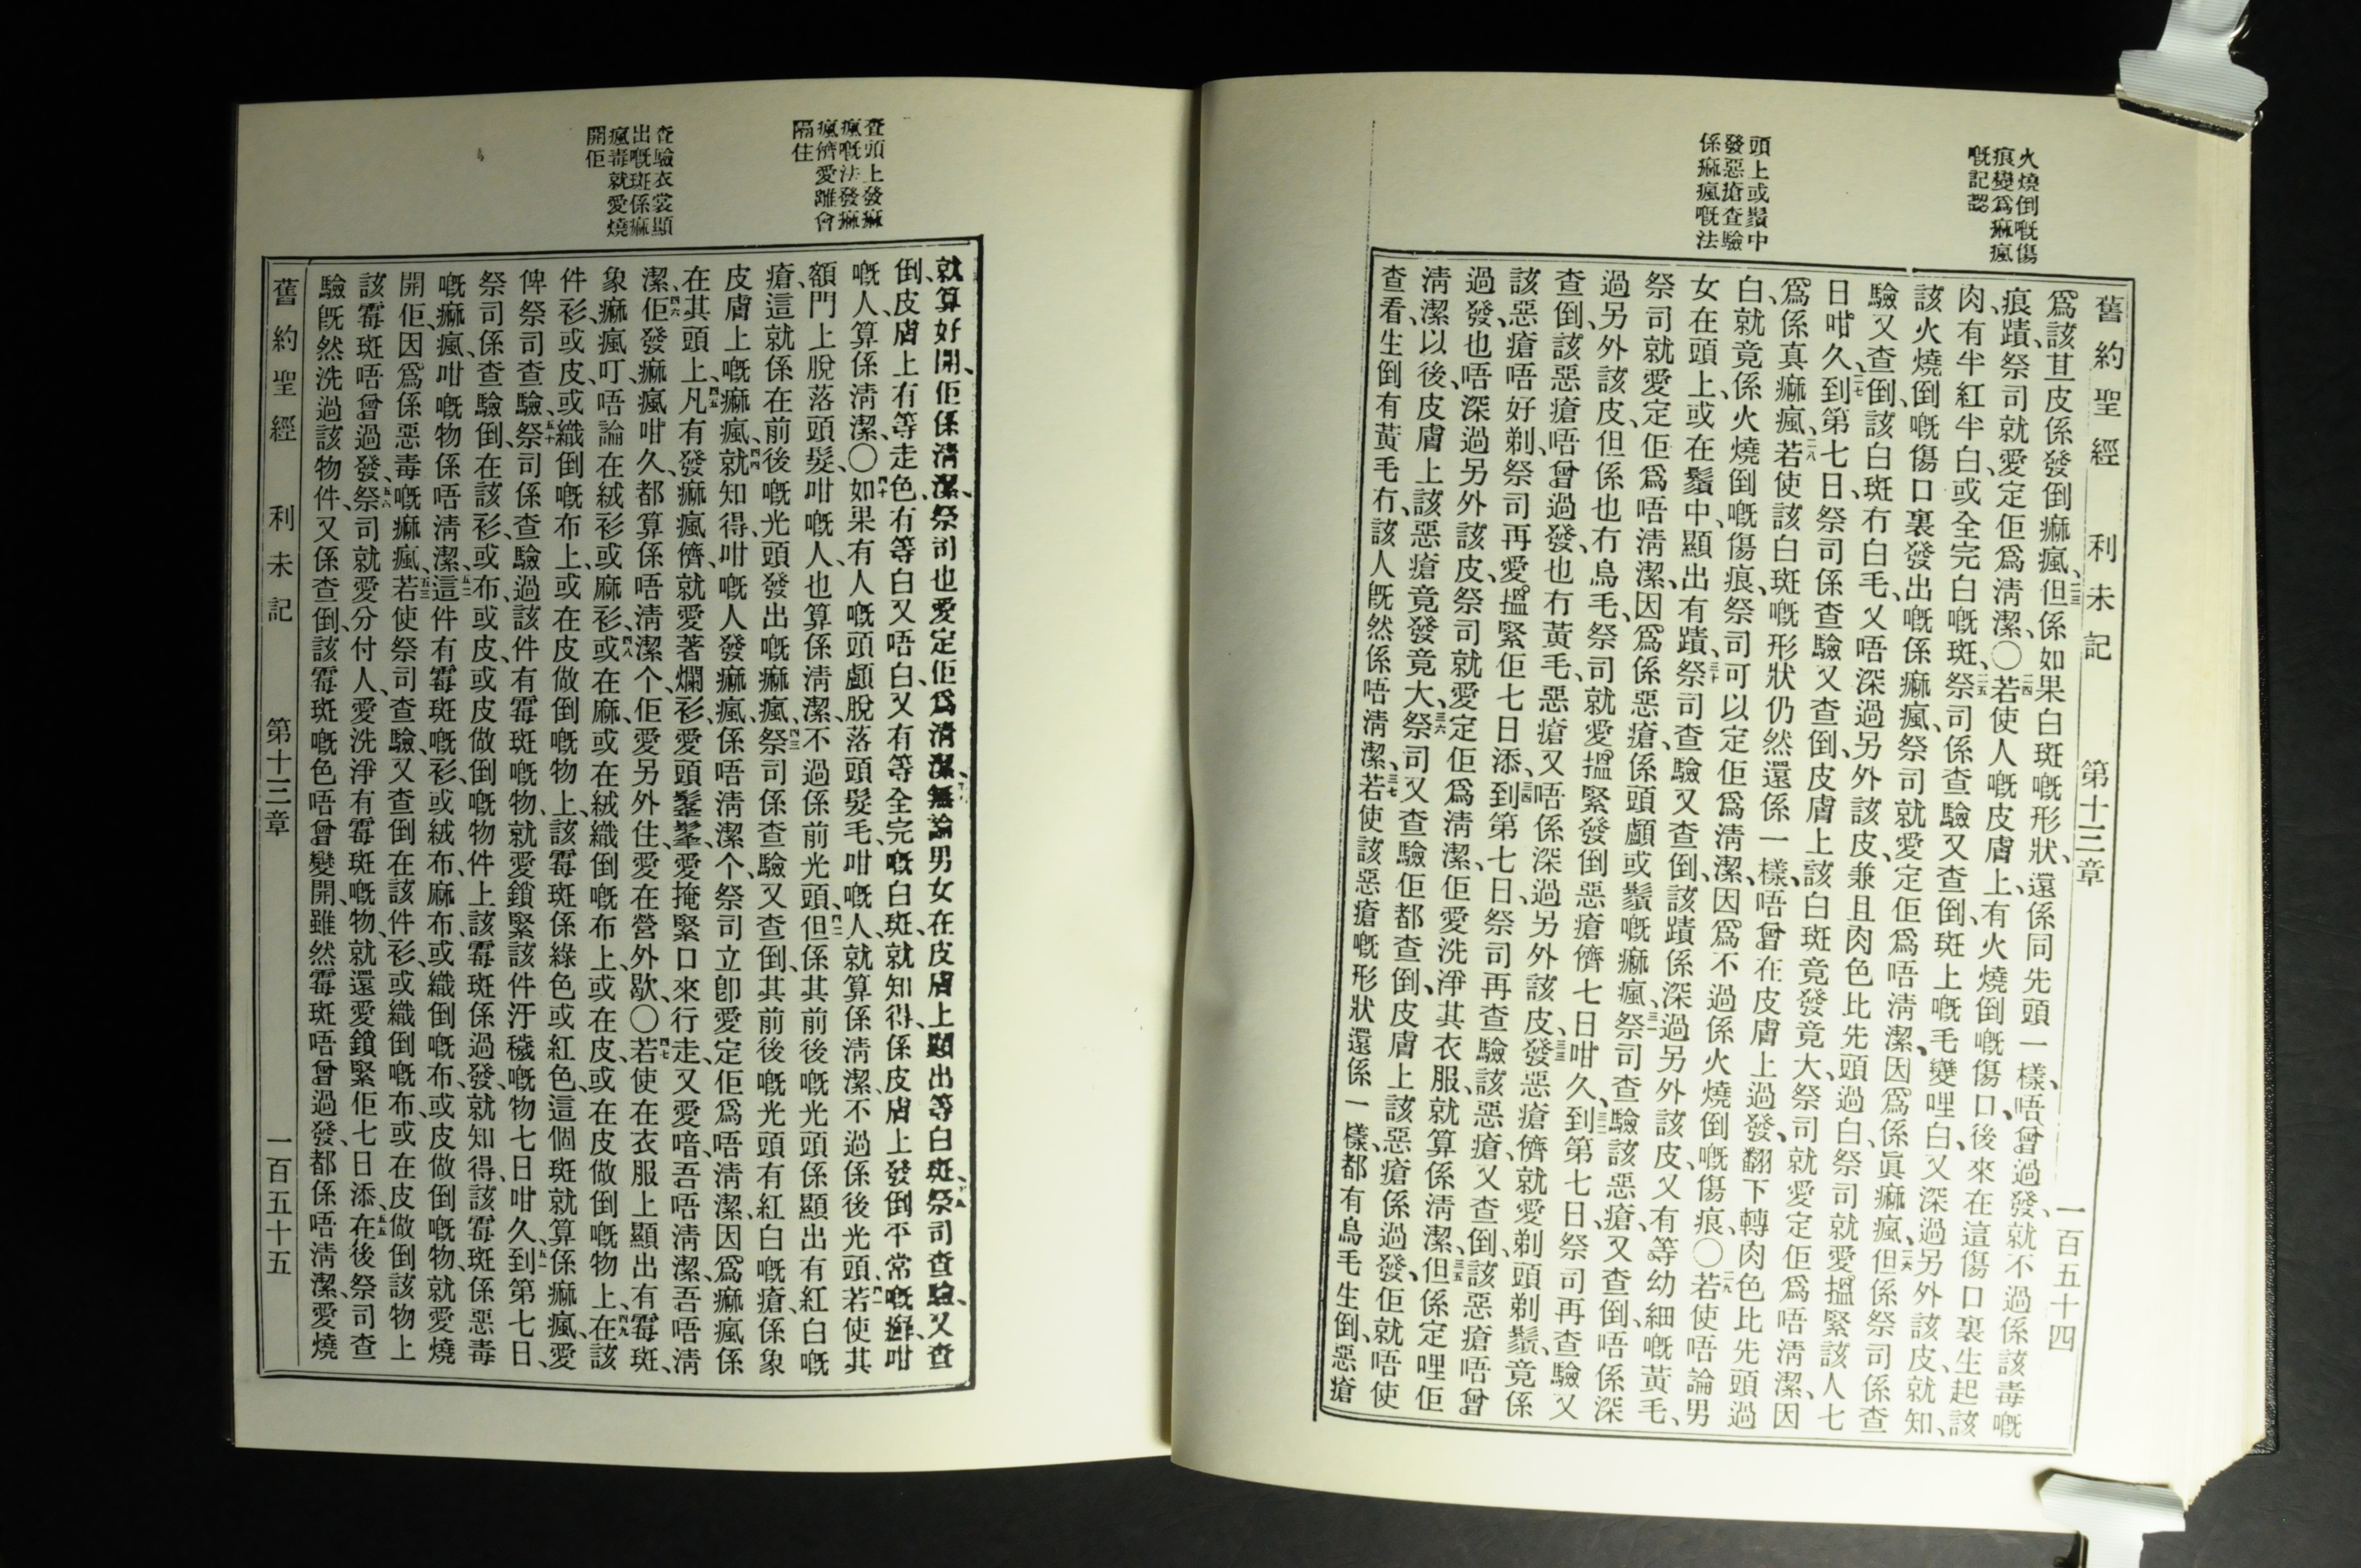 火燒倒嘅傷
痕變爲痲瘋
嘅記認
頭上或鬚中
發惡瘡查驗
係痲瘋嘅法
舊約聖經 利未記 第十三章 一百五十四
爲該苴皮係發倒痲瘋、二三但係如果白斑嘅形狀、還係同先頭一樣、唔曾過發、就不過係該毒嘅
痕蹟、祭司就愛定佢爲淸潔、〇二四若使人嘅皮膚上、有火燒倒嘅傷口、後來在這傷口裏生起該
肉有半紅半白、或全完白嘅斑、二五祭司係查驗又查倒、斑上嘅毛變哩白、又深過另外該皮、就知、
該火燒倒嘅傷口裏發出嘅係痲瘋、祭司就愛定佢爲唔淸潔、因爲係眞痲瘋、二六但係祭司係查
驗又查倒、該白斑冇白毛、又唔深過另外該皮、兼且肉色比先頭過白、祭司就愛搵緊該人七
日咁久、二七到第七日祭司係查驗又查倒、皮膚上該白斑竟發竟大、祭司就愛定佢爲唔淸潔、因
爲係真痲瘋、二八若使該白斑嘅形狀仍然還係一樣、唔曾在皮膚上過發、翻下轉肉色比先頭過
白、就竟係火燒倒嘅傷痕、祭司可以定佢爲淸潔、因爲不過係火燒倒嘅傷痕、〇二九若使唔論男
女在頭上、或在鬚中、顯出有蹟、三十祭司查驗又查倒、該蹟係深過另外該皮、又有等幼細嘅黃毛、
祭司就愛定佢爲唔淸潔、因爲係惡瘡、係頭顱或鬚嘅痲瘋、三一祭司查驗該惡瘡、又查倒、唔係深
過另外該皮、但係也冇烏毛、祭司就愛搵緊發倒惡瘡儕七日咁久、三二到第七日、祭司再查驗又
查倒、該惡瘡唔曾過發、也冇黃毛、惡瘡又唔係深過另外該皮、三三發惡瘡儕就愛剃頭剃鬚、竟係
該惡瘡唔好剃、祭司再愛搵緊佢七日添、三四到第七日、祭司再查驗該惡瘡、又查倒、該惡瘡唔曾
過發、也唔深過另外該皮、祭司就愛定佢爲淸潔、佢愛洗淨其衣服、就算係淸潔、三五但係定哩佢
淸潔以後、皮膚上該惡瘡竟發竟大、三六祭司又查驗佢都查倒、皮膚上該惡瘡係過發、佢就唔使
查看、生倒有黃毛冇、該人既然係唔淸潔、三七若使該惡瘡嘅形狀還係一樣、都有烏毛生倒、惡瘡
查頭上發痲
瘋嘅法發痲
瘋儕愛離會
隔住
查驗衣裳顯
出嘅斑係痲
瘋毒就愛燒
開佢
就算好開、佢係淸潔、祭司也愛定佢爲淸潔、無論男女在皮膚上顯出等白斑、祭司查驗、又查
倒、皮膚上有等走色、有等白又唔白、又有等全完嘅白斑、就知得、係皮膚上發倒平常嘅癬、咁
嘅人、算係淸潔、〇四十如果有人嘅頭顱脫落頭髮毛、咁嘅人、就算係淸潔、不過係後光頭、四一若使其
額門上脫落頭髮、咁嘅人、也算係淸潔、不過係前光頭、四二但係其前後嘅光頭係顯出有紅白嘅
瘡、這就係在前後嘅光頭發出嘅痲瘋、四三祭司係查驗又查倒、其前後嘅光頭有紅白嘅瘡、係象
皮膚上嘅痲瘋、四四就知得、咁嘅人發痲瘋、係唔淸潔个、祭司立卽愛定佢爲唔淸潔、因爲痲瘋係
在其頭上、四五凡有發痲瘋儕、就愛著爛衫、愛頭鬖髼、愛掩緊口來行走、又愛喑、吾唔淸潔、吾唔淸
潔、四六佢發痲瘋咁久、都算係唔淸潔个、佢愛另外住、愛在營外歇、〇四七若使在衣服上顯出有霉斑、
象痲瘋、叮唔論在絨衫或麻衫、四八或在麻、或在絨織倒嘅布上、或在皮、或在皮做倒嘅物上、四九在該
件衫、或皮、或織倒嘅布上、或在皮做倒嘅物上、該霉斑係綠色或紅色、這個斑就算係痲瘋、愛
俾祭司查驗、五十祭司係查驗過該件有霉斑嘅物、就愛鎖緊該件汙穢嘅物七日咁久、五一到第七日、
祭司係查驗倒、在該衫、或布、或皮、或皮做倒嘅物件上該霉斑係過發、就知得、該霉斑係惡毒
嘅痲瘋、咁嘅物係唔淸潔、五二這件有霉斑嘅衫、或絨布、麻布、或織倒嘅布、或皮做倒嘅物、就愛燒
開佢、因爲係惡毒嘅痲瘋、五三若使祭司查驗、又查倒在該件衫、或織倒嘅布、或在皮做倒該物上
該霉斑唔曾過發、五六祭司就愛分付人、愛洗淨有霉斑嘅物、就還愛鎖緊佢七日添、五五在後祭司查
驗既然洗過該物件、又係查倒、該霉斑嘅色唔曾變開、雖然霉斑唔曾過發、都係唔淸潔、愛燒
舊約聖經 利未記 第十三章 一百五十五